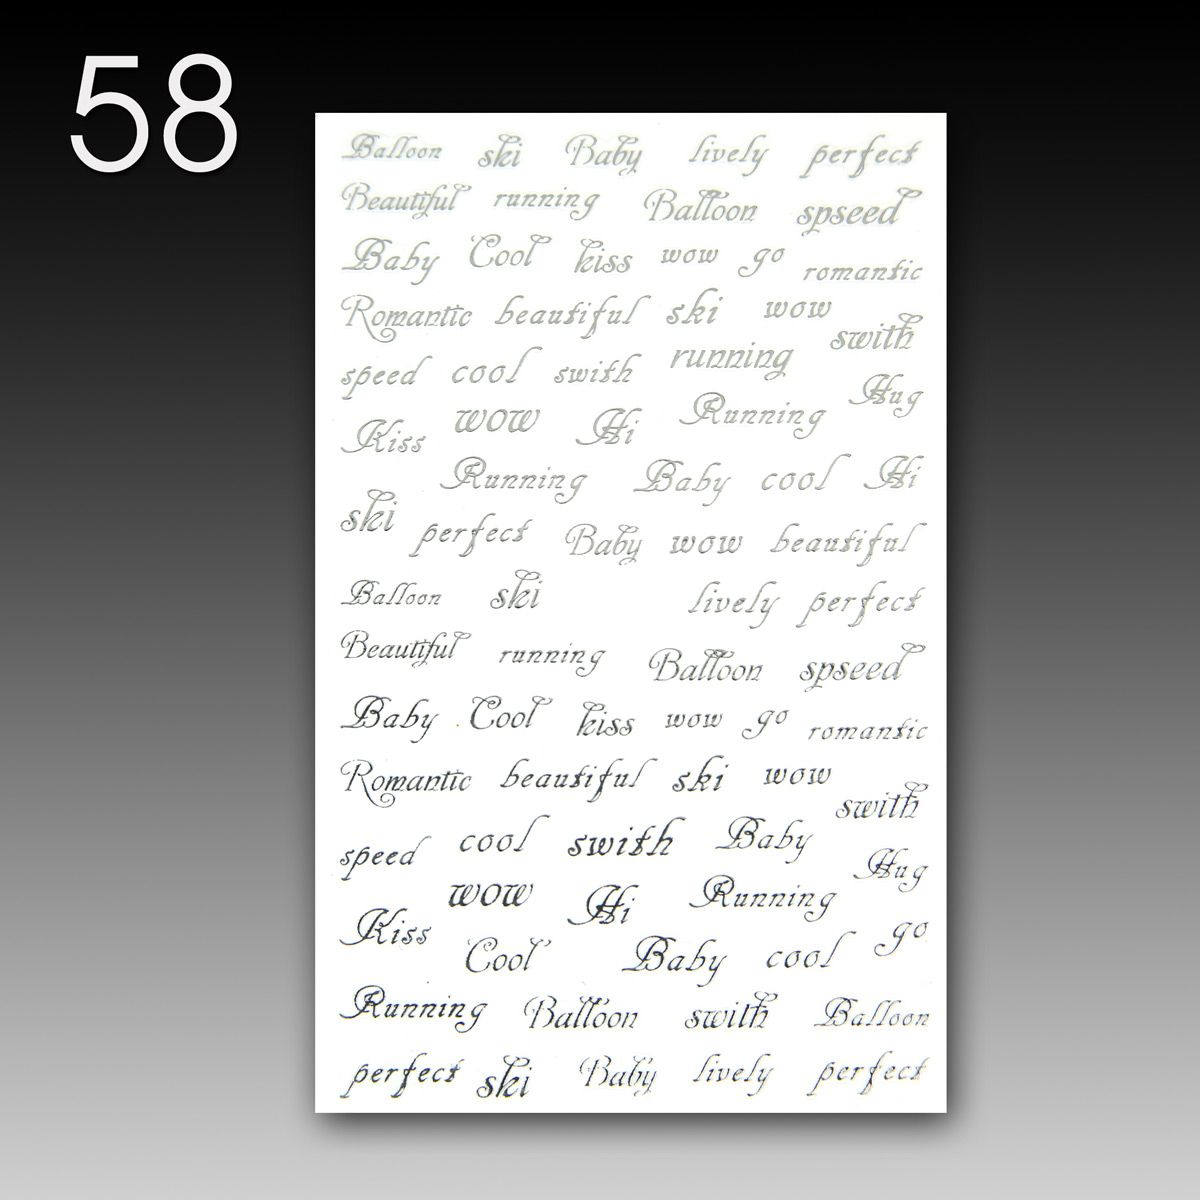 58
Balloon ski Baby lively perfect
Beautiful running Balloon spseed
Baby Cool kiss wow go romantic
Romantic beautiful ski wow
swith
speed cool swith running
Hug
Kiss wow Hi Running
Running Baby cool Hi
ski perfect Baby wow beautiful
Balloon ski lively perfect
Beautiful running Balloon spseed
Baby Cool kiss wow go romantic
Romantic beautiful ski wow
swith
speed cool swith Baby
Hug
Kiss wow Hi Running
Cool Baby cool go
Running Balloon swith Balloon
perfect ski Baby lively perfect